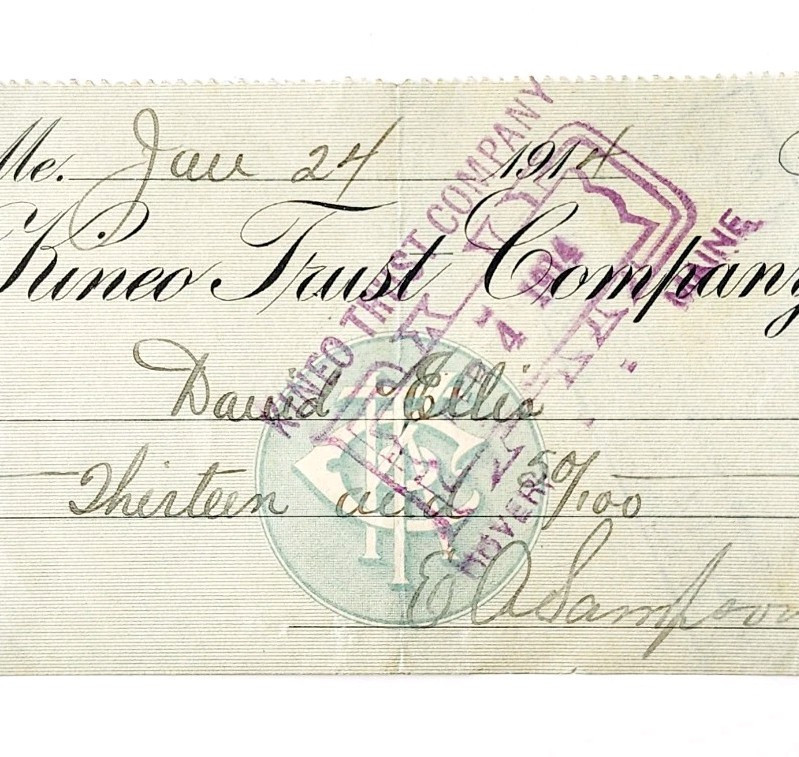 Me. Jan 24 1914
Kineo Trust Company
David Ellis
Thirteen and 50/100
E A Sampson
KINEO TRUST COMPANY
PAID
4 1914
DOVER MAINE